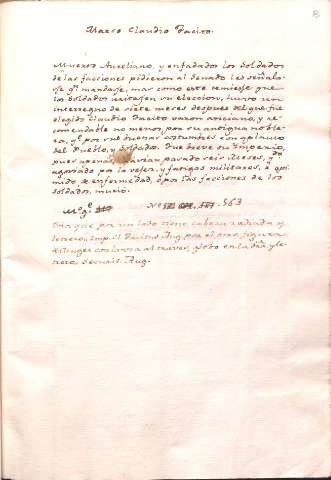 8
Marco Claudio Tacito.
Muerto Aureliano, y enfadados los Soldados
de las facciones pidieron al Senado les señala-
se qn mandase, mas como este temiesse que
los Soldados unitassen su eleccion, huvo un
interregno de siete meses despues del que fue
elegido Claudio Tacito varon anciano, y re-
comendable no menos, por su antigua noble-
za, q.e por sus buenas costumbres con aplauso
del Pueblo, y Soldados. Fue breve su Imperio,
pues apenas havian pasado seis Meses, q.do
agovado por la vejez, y fatigas militares, u opri-
mido de enfermedad, o por las facciones de los
Soldados, murio.
M.o g.e Nº 563
Una que por un lado tiene cabeza radiada y
letrero, Imp. Cl. Tacitus Aug. por el otro, figura
de Muger con lanza al traves, globo en la dra y le-
trero,
Aug.